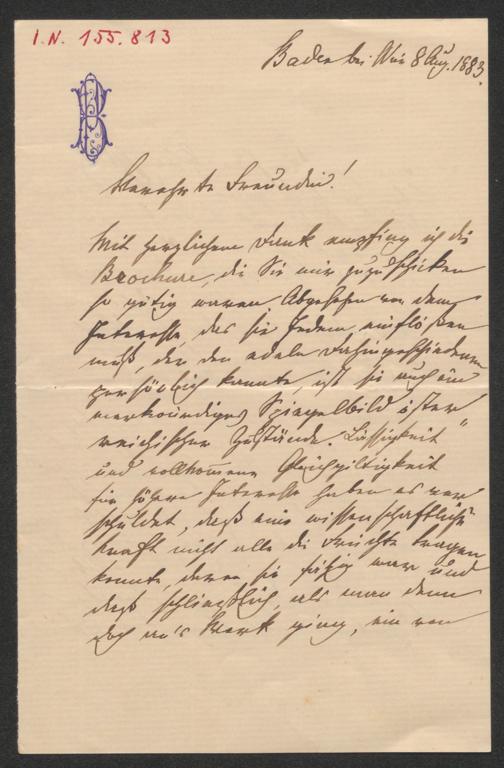 I.N. 155.813
Baden bei Wien 8 Aug. 1883.
B
Verehrte Freundin!
Mit herzlichem Dank empfing ich die
Brochure, die Sie mir zuzuschicken
so gütig waren. Abgesehen von dem
Interesse, das sie Jedem einflößen
muß, der den edeln Dahingeschiedenen
persönlich kannte, ist sie auch ein
merkwürdiges Spiegelbild öster
reichischer Zustände. Lässigkeit
und vollkomene Gleichgiltigkeit
für höhere Interesse haben es ver
schuldet, daß eine wissenschaftliche
Kraft nicht alle die Früchte tragen
konnte, deren sie fähig war und
daß schließlich, als man denn
doch an's Werk ging, ein von